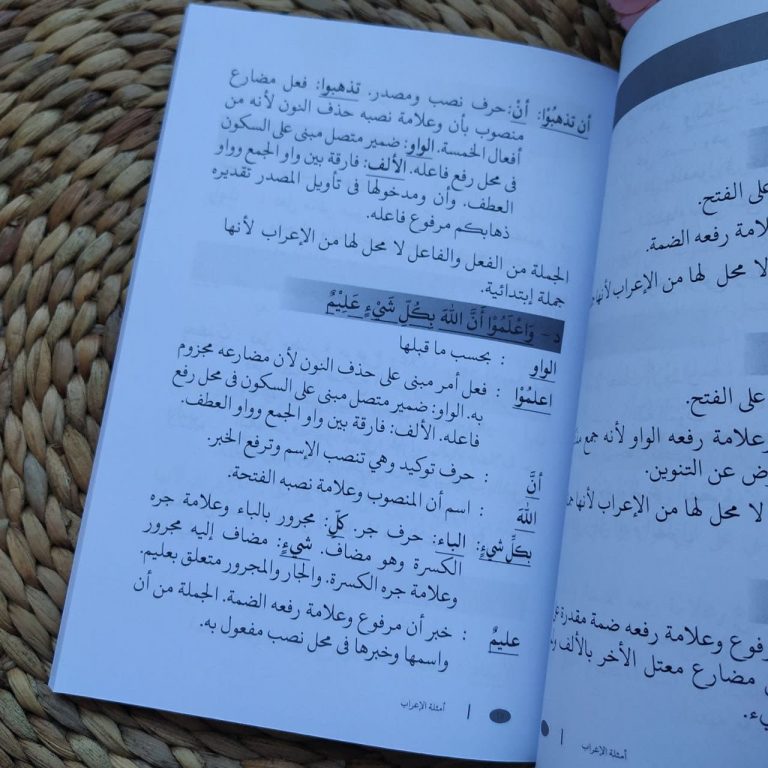 أن تذهبُوْا: أنْ: حرف نصب ومصدر. تذهبوا: فعل مضارع
منصوب بأن وعلامة نصبه حذف النون لأنه من
أفعال الخمسة. الواو: ضمير متصل مبنى على السكون
فى محل رفع فاعله. الألف: فارقة بين واو الجمع وواو
العطف. وأن ومدخولها فى تأويل المصدر تقديره
ذهابكم مرفوع فاعله.
الجملة من الفعل والفاعل لا محل لها من الإعراب لأنها
جملة إبتدائية.
د - وَاعْلَمُوْا أَنَّ اللهَ بِكُلِّ شَيْءٍ عَلِيْمٌ
الواو : بحسب ما قبلها
اعلمُوْا : فعل أمر مبنى على حذف النون لأن مضارعه مجزوم
به. الواو: ضمير متصل مبنى على السكون فى محل رفع
فاعله. الألف: فارقة بين واو الجمع وواو العطف.
أنَّ : حرف توكيد وهي تنصب الإسم وترفع الخبر.
اللهَ : اسم أن المنصوب وعلامة نصبه الفتحة.
بكلِّ شيءٍ: الباء: حرف جر. كلِّ: مجرور بالباء وعلامة جره
الكسرة وهو مضاف. شيءٍ: مضاف إليه مجرور
وعلامة جره الكسرة. والجار والمجرور متعلق بعليم.
عليمٌ : خبر أن مرفوع وعلامة رفعه الضمة. الجملة من أن
واسمها وخبرها فى محل نصب مفعول به.
أمثلة الإعراب
على الفتح.
علامة رفعه الضمة.
لا محل لها من الإعراب لأنها
على الفتح.
وعلامة رفعه الواو لأنه جمع
عن التنوين.
لا محل لها من الإعراب لأنها
مرفوع وعلامة رفعه ضمة مقدرة
مضارع معتل الأخر بالألف
أمثلة الإعراب